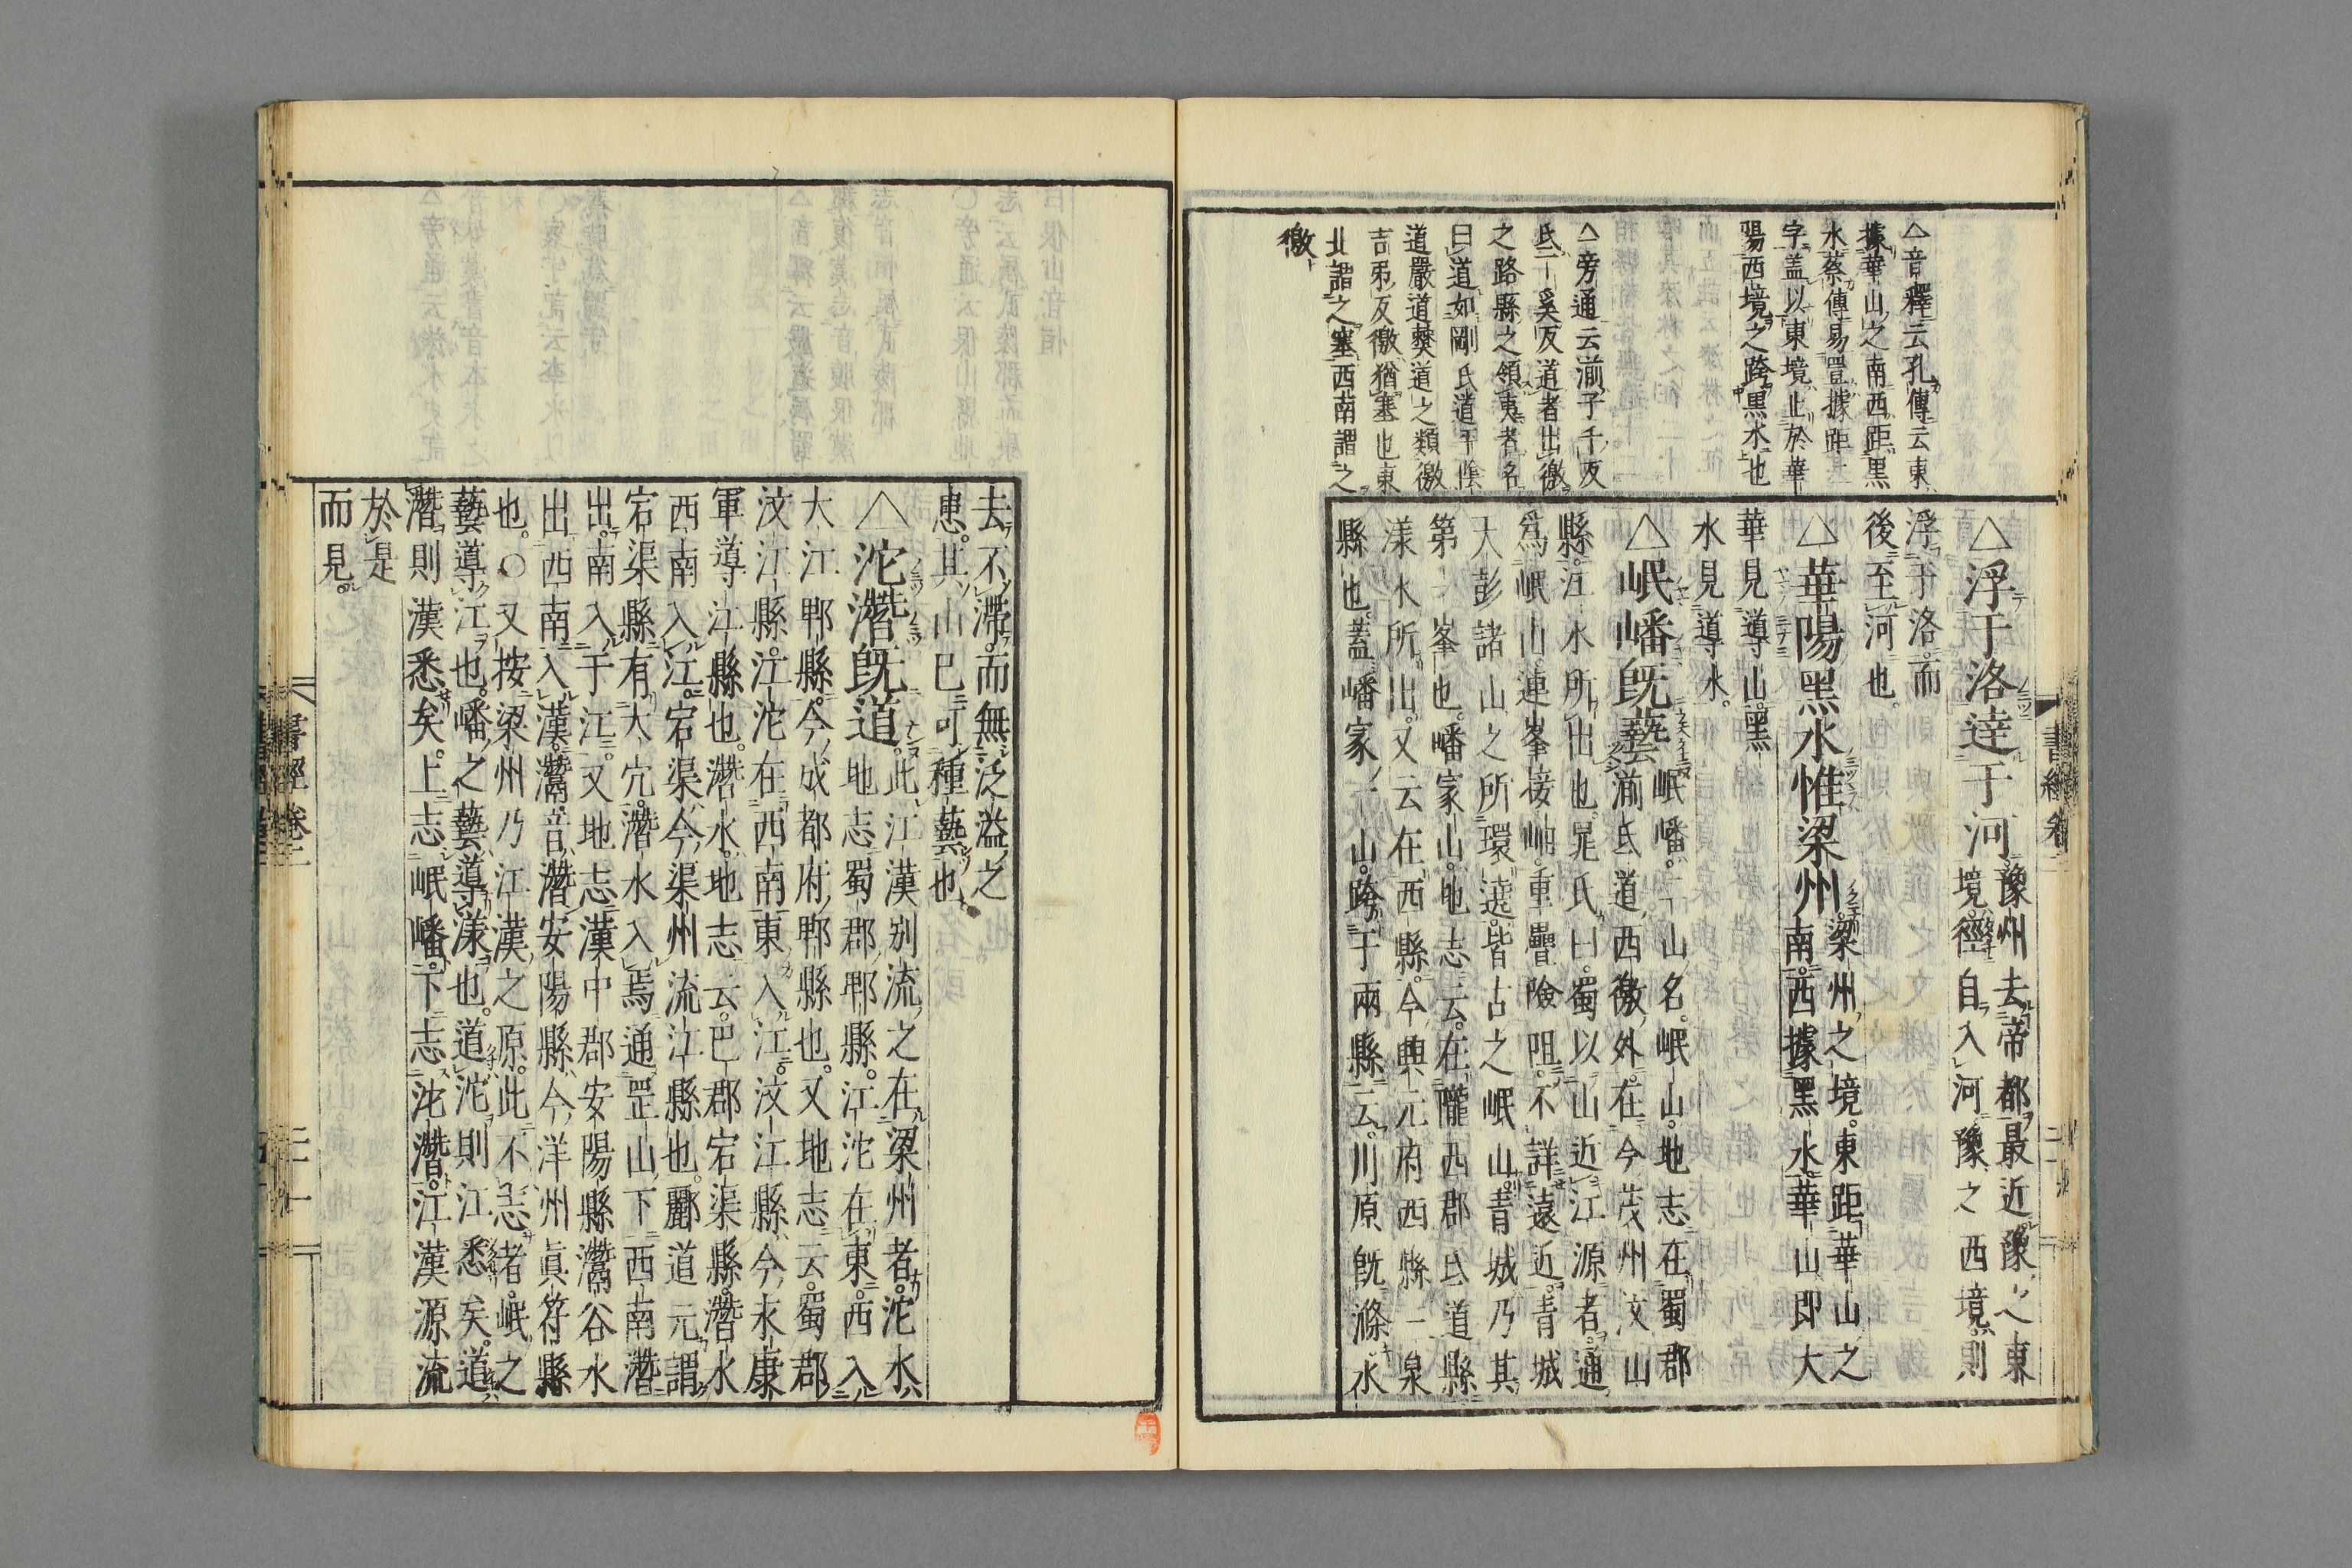 △音釋云孔傳云東
據華山之南西距黑
水蔡傳易置據距二
字盖以東境止於華
陽西境之跨黑水也
△旁通云湔子千反
氐丁奚反道者出徼
之路縣之領夷者名
曰道如剛氐道于陰
道嚴道僰道之類徼
吉弔反徼猶塞也東
北謂之塞西南謂之
徼
△浮于洛達于河豫州去帝都最近豫之東
境徑自入河豫之西境則
浮于洛而
後至河也
△華陽黑水惟梁州梁州之境東距華山之
南西據黑水華山即大
華見導山黑
水見導水
△岷嶓既藝岷嶓二山名岷山地志在蜀郡
湔氐道西徼外在今茂州汶山
縣江水所出也晁氏曰蜀以山近江源者通
爲岷山連峯接岫重疊險阻不詳遠近青城
天彭諸山之所環遶皆古之岷山青城乃其
第一峯也嶓冢山地志云在隴西郡氐道縣
漾水所出又云在西縣今興元府西縣三泉
縣也蓋嶓冢一山跨于兩縣云川原既滌水
去不滯而無泛溢之
患其山已可種藝也
△沱潛既道此江漢別流之在梁州者沱水
地志蜀郡郫縣江沱在東西入
大江郫縣今成都府郫縣也又地志云蜀郡
汶江縣江沱在西南東入江汶江縣今永康
軍導江縣也潛水地志云巴郡宕渠縣潛水
西南入江宕渠今渠州流江縣也酈道元謂
宕渠縣有大穴潛水入焉通罡山下西南潛
出南入于江又地志漢中郡安陽縣灊谷水
出西南入漢灊音潛安陽縣今洋州眞符縣
也○又按梁州乃江漢之原此不志者岷之
藝導江也嶓之藝導漾也道沱則江悉矣道
潛則漢悉矣上志岷嶓下志沱潛江漢源流
於是
而見
書經卷二
二十一